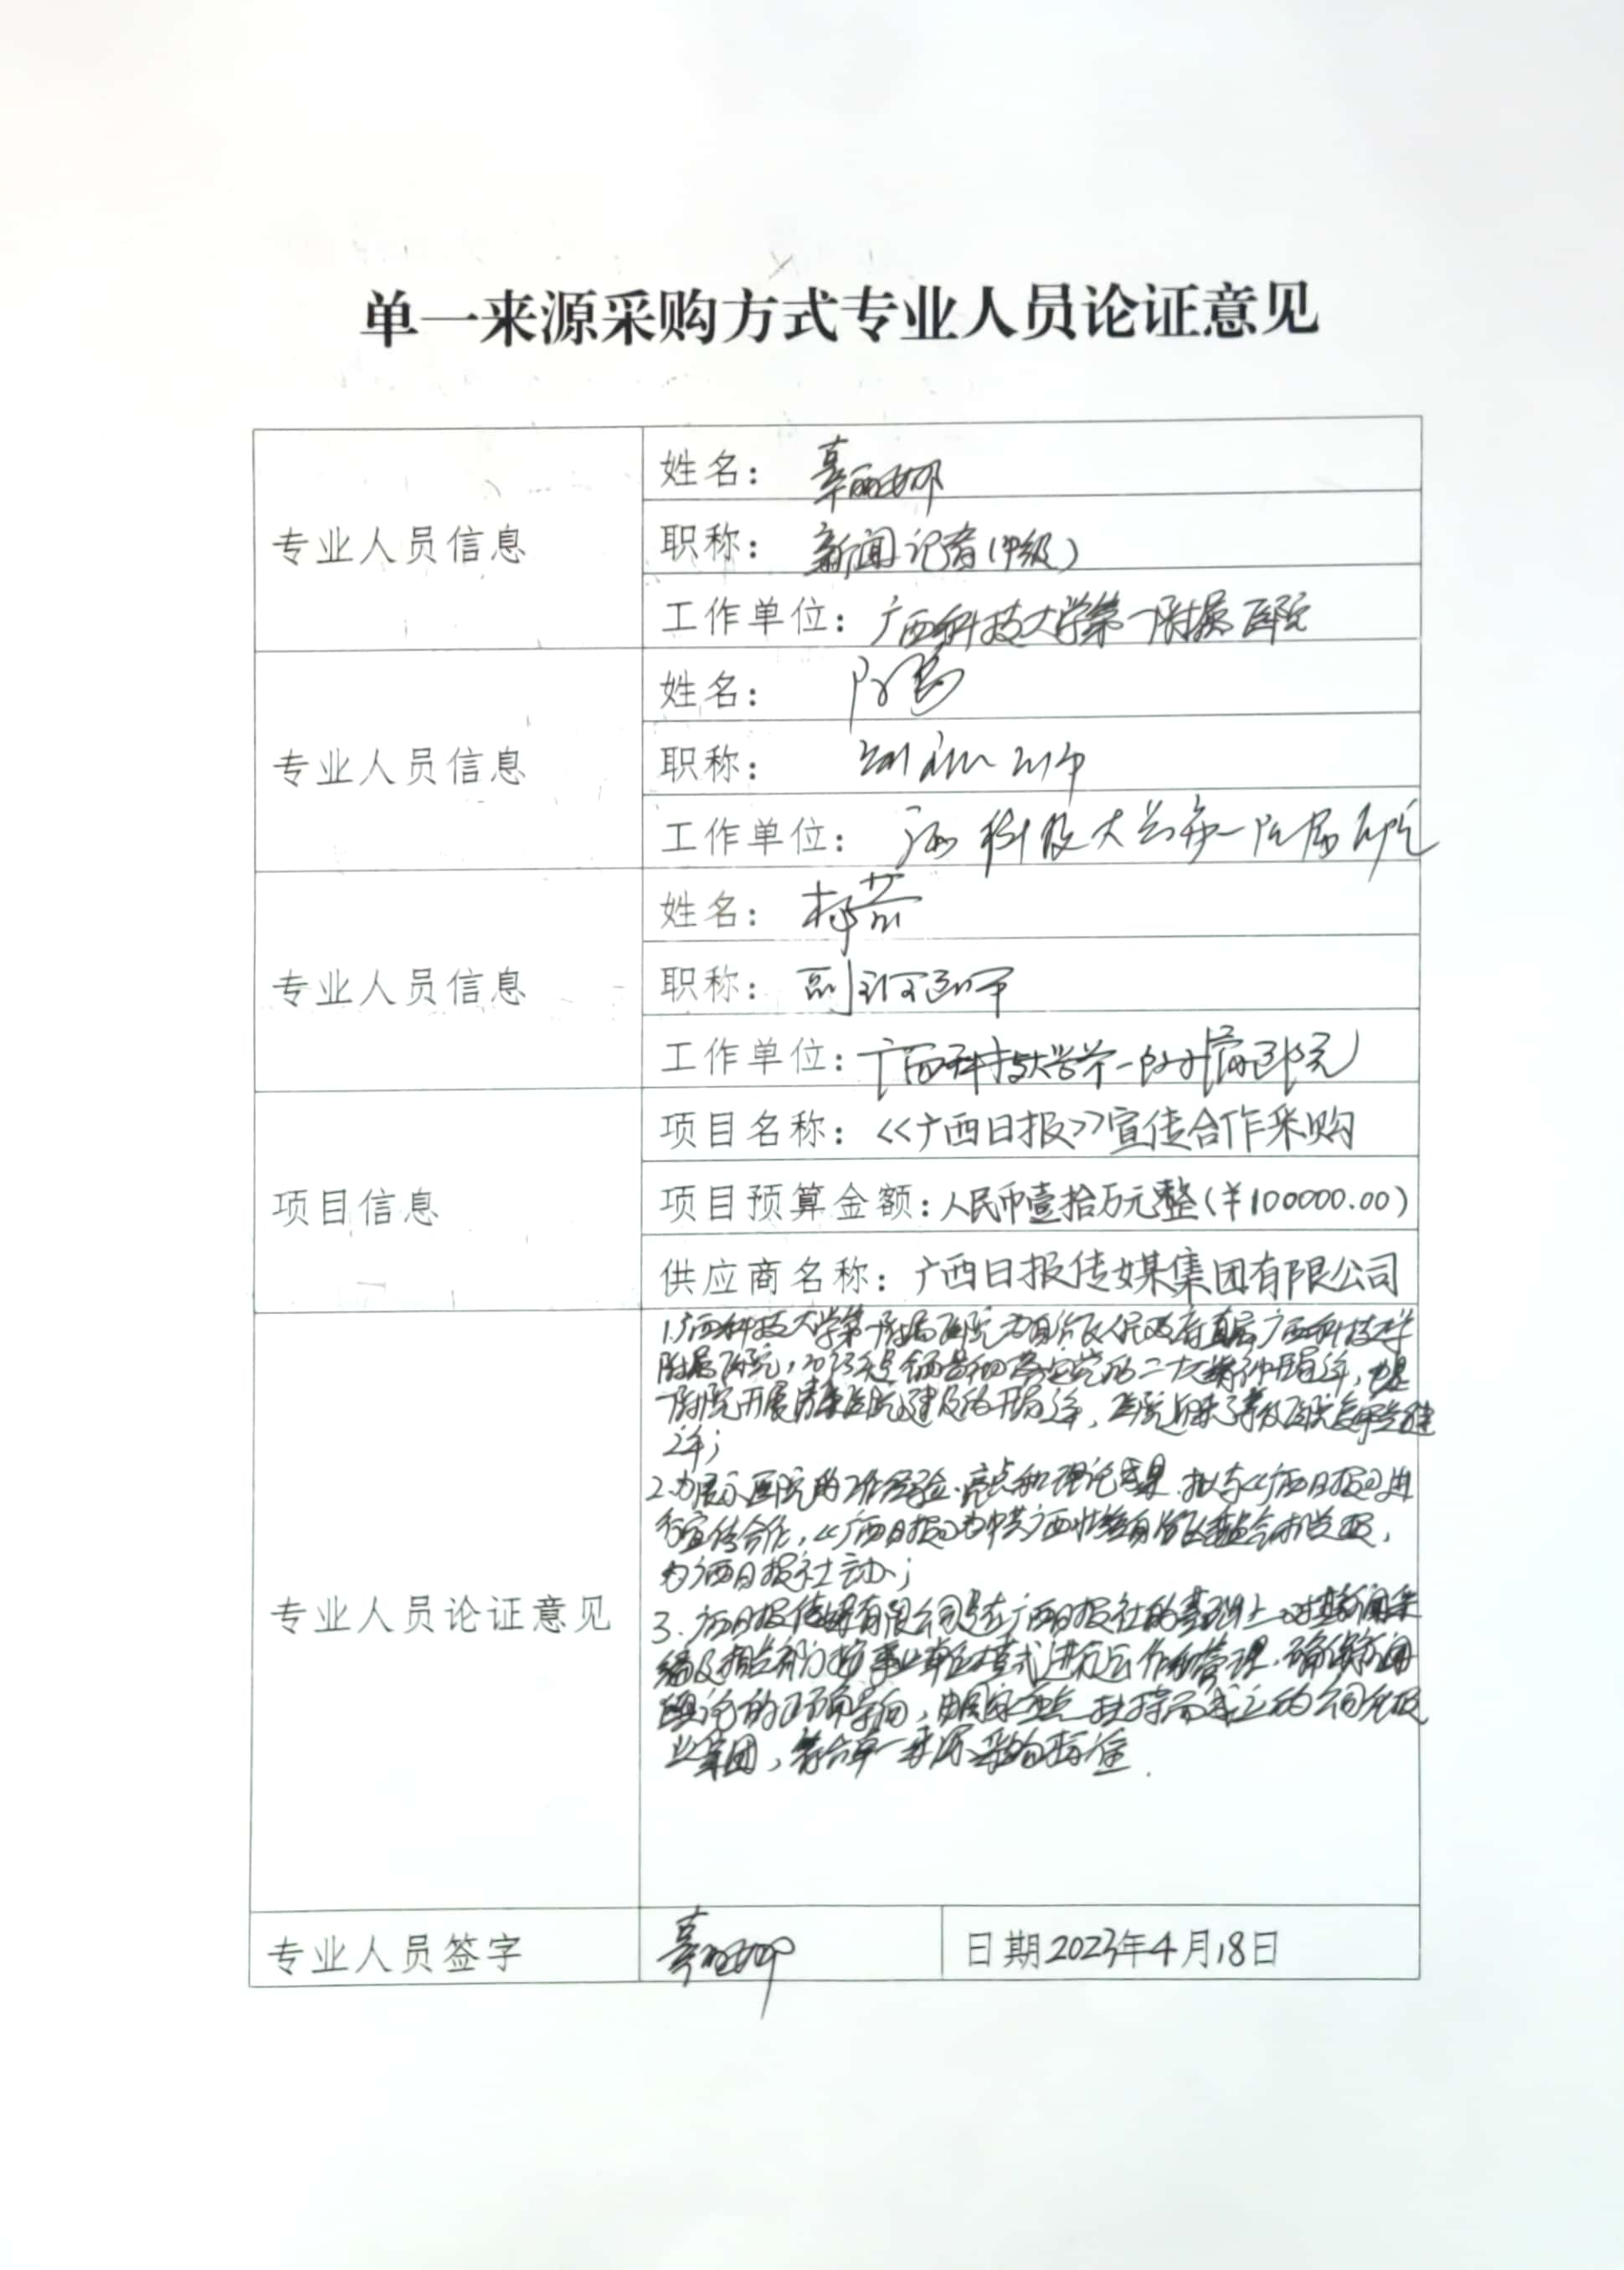 单一来源采购方式专业人员论证意见
专业人员信息
姓名：
职称：新闻记者（中级）
工作单位：广西科技大学第一附属医院
专业人员信息
姓名：
职称：
工作单位：广西科技大学第一附属医院
专业人员信息
姓名：
职称：副
工作单位：广西科技大学第一附属医院
项目信息
项目名称：<<广西日报>>宣传合作采购
项目预算金额：人民币壹拾万元整（￥100000.00）
供应商名称：广西日报传媒集团有限公司
专业人员论证意见
1.广西科技大学第一附属医院为自治区人民政府直属广西科技大学
附属医院，2023年是全面贯彻落实党的二十大精神开局之年，也是
一附院开展清廉医院建设的开局之年，医院迎来等级医院复审关键
之年；
2.为展示医院的工作经验、亮点和理论成果，拟与<<广西日报>>进
行宣传合作，<<广西日报>>为中共广西壮族自治区委员会机关报，
为广西日报社主办；
3.广西日报传媒有限公司是在广西日报社的基础上，对其新闻采
编及相关部门按事业单位模式进行运作和管理，确保新闻
舆论的正确导向，由
业集团，符合单一来源采购标准.
专业人员签字
日期2023年4月18日